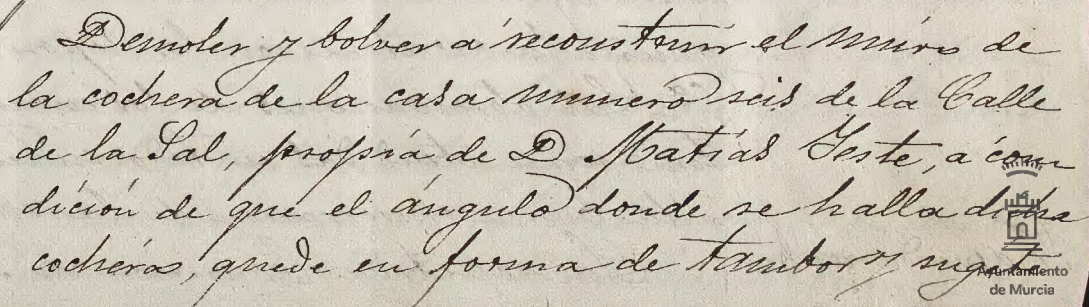 Demoler y bolver á reconstruir el muro de
la cochera de la casa numero seis de la Calle
de la Sal, propia de D Matías Yeste, á con
dición de que el ángulo donde se halla dicha
cochera, quede en forma de tambor y sugeta
Ayuntamiento
de Murcia